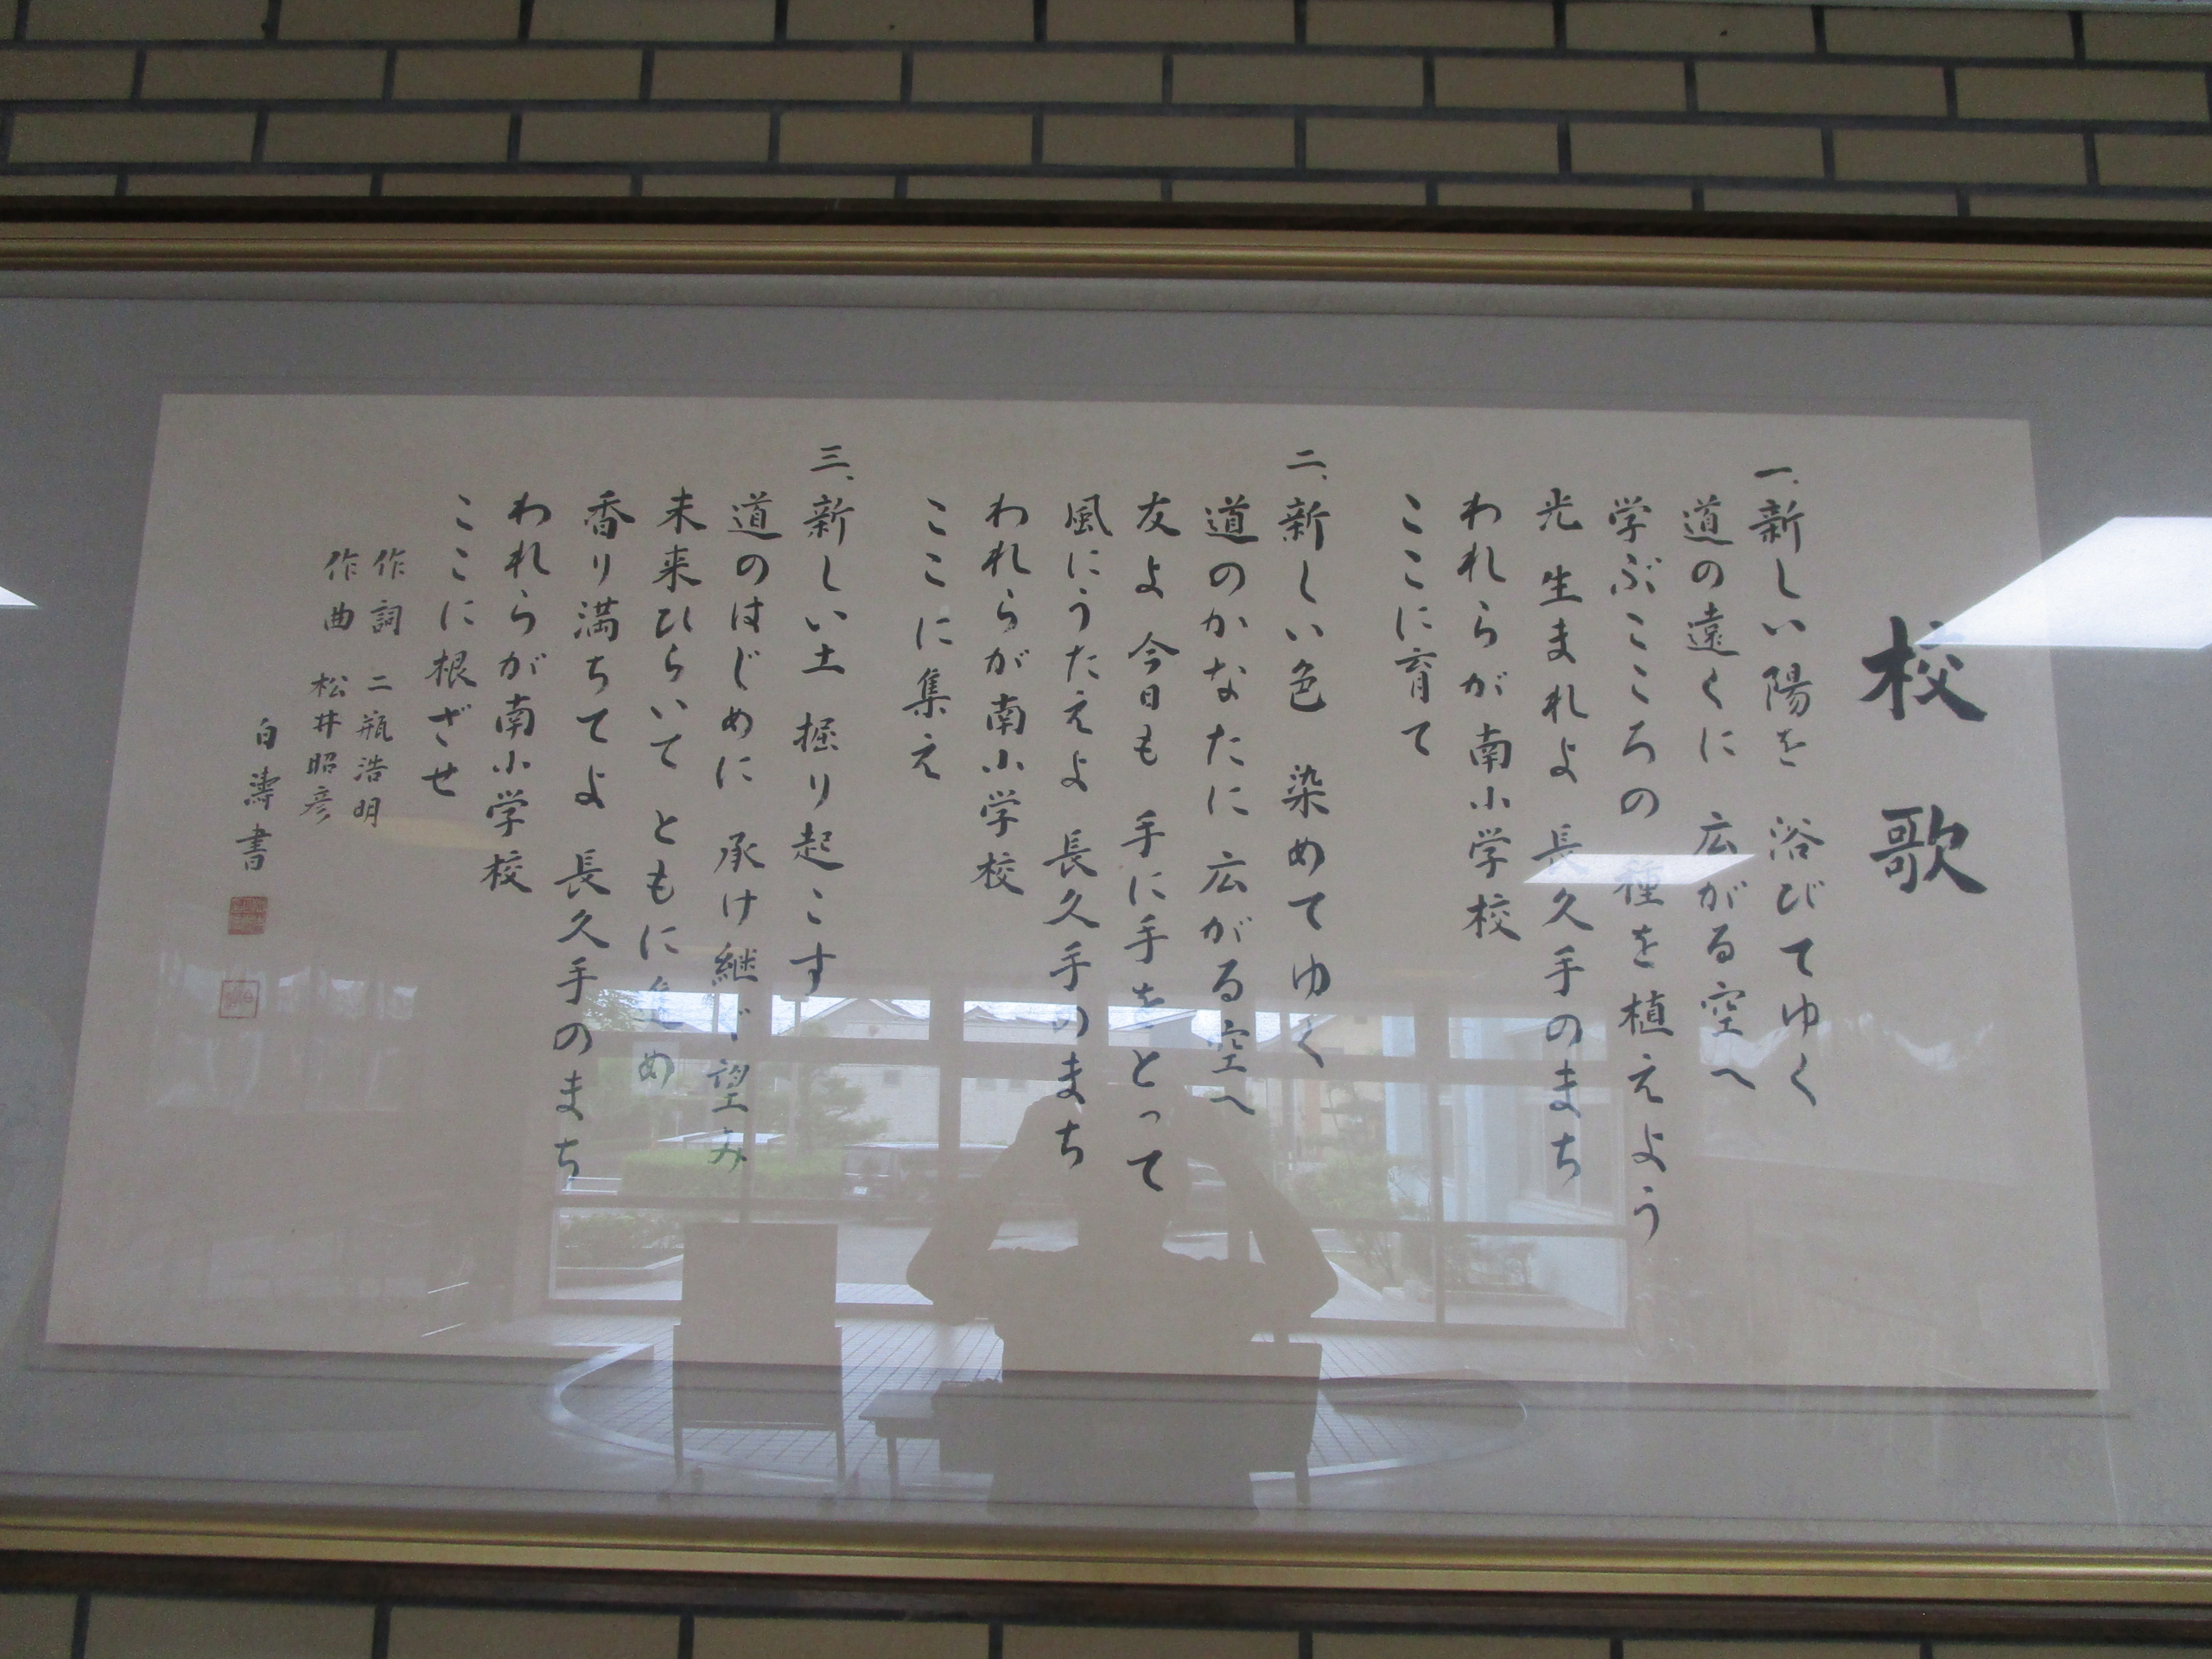 校歌
一、新しい陽を 浴びてゆく
道の遠くに 広がる空へ
学ぶこころの 種を植えよう
光生まれよ 長久手のまち
われらが南小学校
ここに育て
二、新しい色 染めてゆく
道のかなたに 広がる空へ
友よ今日も 手に手をとって
風にうたえよ 長久手のまち
われらが南小学校
ここに集え
三、新しい土 掘り起こす
道のはじめに 承け継ぐ望み
未来ひらいて ともに進め
香り満ちてよ 長久手のまち
われらが南小学校
ここに根ざせ
作詞 二瓶浩明
作曲 松井昭彦
白濤書